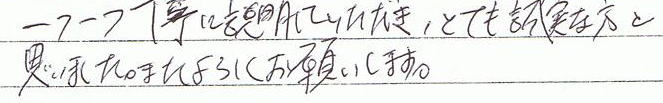 一つ一つ丁寧に説明していただき、とても誠実な方と
思いました。またよろしくお願いします。